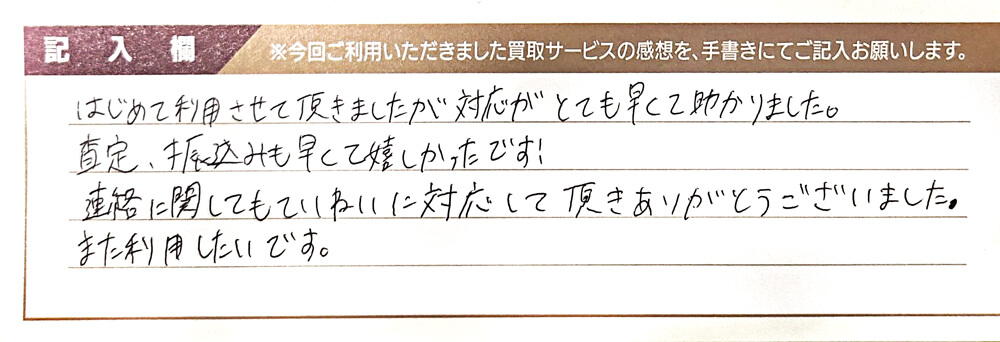 記入欄 ※今回ご利用いただきました買取サービスの感想を、手書きにてご記入お願いします。
はじめて利用させて頂きましたが対応がとても早くて助かりました。
査定、振込みも早くて嬉しかったです!
連絡に関してもていねいに対応して頂きありがとうございました。
また利用したいです。